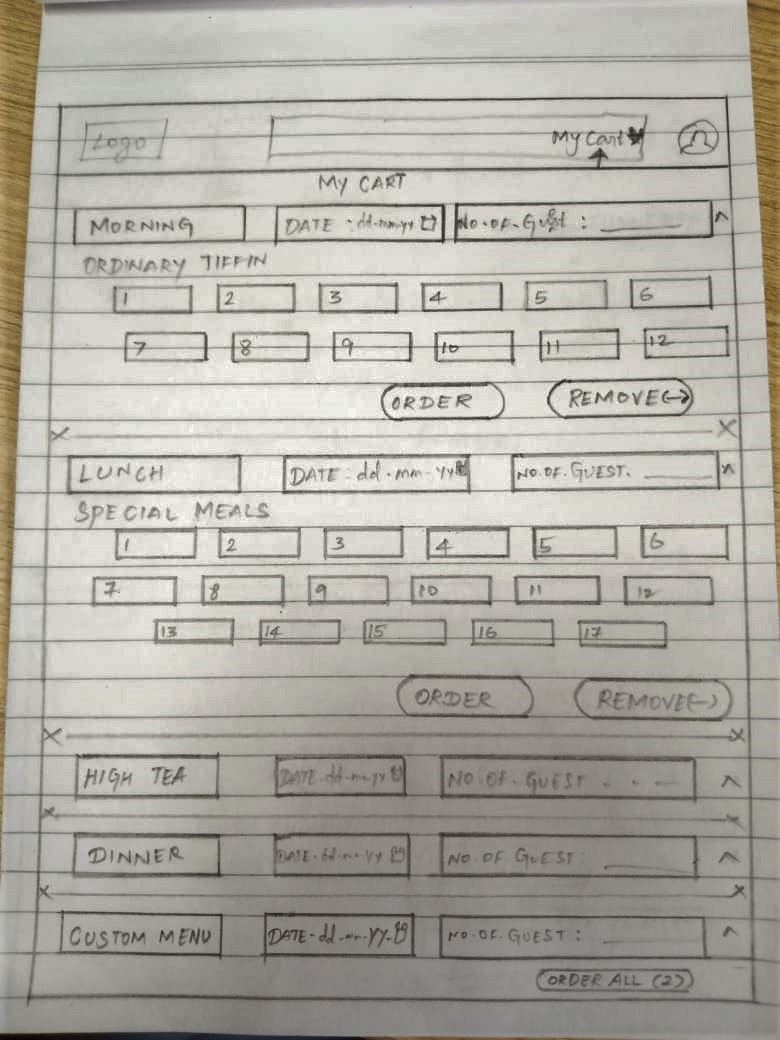 Logo My Cart
MY CART
MORNING DATE : dd-mm-yy NO.OF.Guest : ______
ORDINARY TIFFIN
1 2 3 4 5 6
7 8 9 10 11 12
ORDER REMOVE
LUNCH DATE : dd.mm.yy NO.OF.GUEST. ______
SPECIAL MEALS
1 2 3 4 5 6
7 8 9 10 11 12
13 14 15 16 17
ORDER REMOVE
HIGH TEA DATE-dd-m-yy NO.OF.GUEST - - -
DINNER DATE-dd-m-yy NO OF GUEST ______
CUSTOM MENU DATE-dd-mm-yy NO.OF.GUEST : ______
ORDER ALL (2)